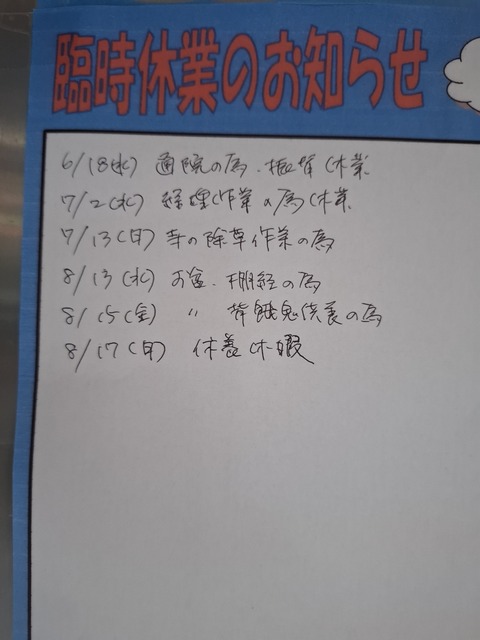 臨時休業のお知らせ
6/18(水) 通院の為、振替休業
7/2(水) 経理作業の為休業
7/13(日) 寺の除草作業の為
8/13(水) お盆、棚経の為
8/15(金) 〃 餓鬼供養の為
8/17(日) 休養休暇